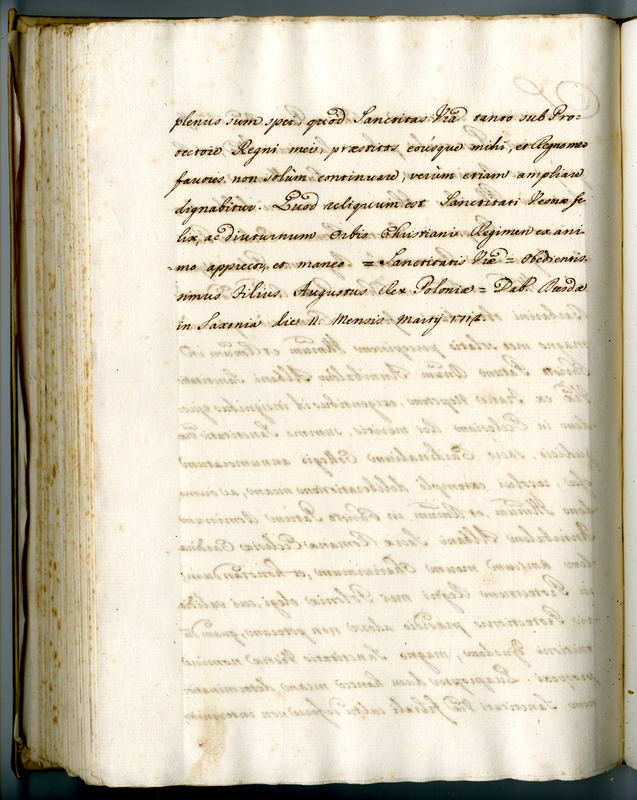 plenus sum spei, quòd Sanctitas Vra tanto sub Pro=
tectore Regni mei, præstitos eoúsque mihi, et Regno meo
favores, non solùm continuare, verùm etiam ampliare
dignabitur. Quod reliquum est Sanctitati Vestræ fe
lix, ac diuturnum Orbis Christiani Regimen ex ani
-mo apprecor, et maneo = Sanctitatis Vræ = Obedientis
simus Filius Augustus Rex Poloniæ = Dab.
in Saxonia die 11. Mensis Martij 1712.